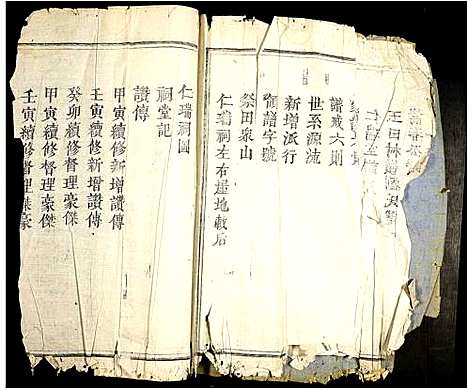 譜戒六則
世系源流
新增派行
領譜字號
祭田泉山
仁瑞祠左右屋地載后
仁瑞祠圖
祠堂記
讚傳
甲寅續修新增讚傳
壬寅續修新增讚傳
癸卯續修督理豪傑
甲寅續修督理豪傑
壬寅續修督理傑豪